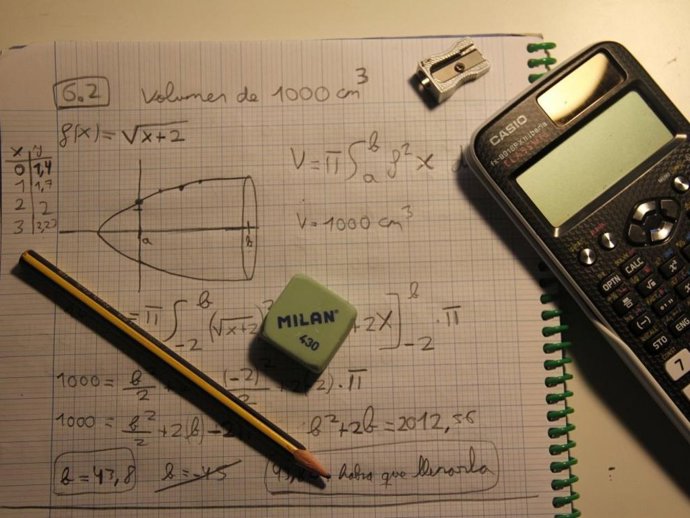 6.2 Volumen de 1000 cm³
f(x) = √x+2
x y
0 1,4
1 1,7
2 2
3 2,23
V = π ∫ₐᵇ f² x
V = 1000 cm³
a b
= π ∫₋₂ᵇ (√x+2)² + 2x]₋₂ᵇ · π
1000 = b²/2 (-2)²/2 · π
1000 = b²/2 + 2(b) - 2 b² + 2b = 2012,56
b = 43,8 b = -45 habra que llenarla
MILAN
430
CASIO
fx-991SPX Iberia
CLASSWIZ
MENU
OPTN CALC
STO ENG
(-)
7